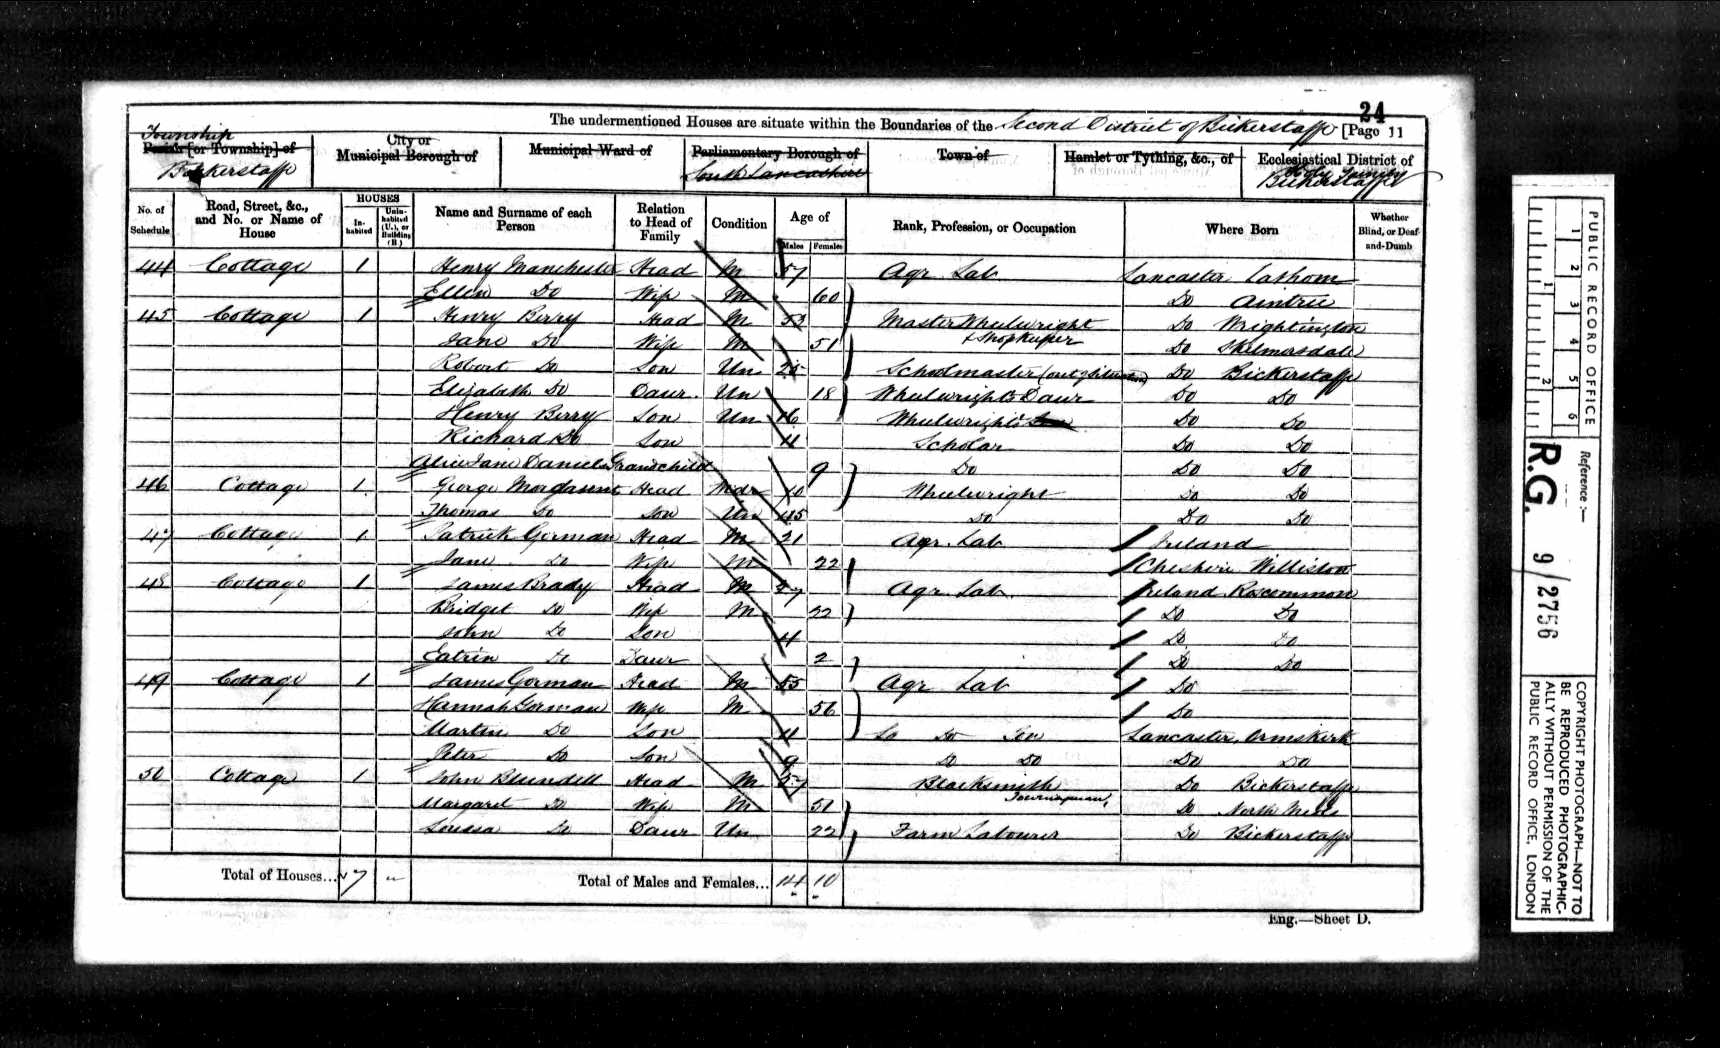 24
The undermentioned Houses are situate within the Boundaries of the Second District of Bickerstaffe [Page 11
Township
Parish [or Township] of
Bickerstaffe
City or
Municipal Borough of
Municipal Ward of
Parliamentary Borough of
South Lancashire
Town of
Hamlet or Tything, &c., of
Ecclesiastical District of
Holy Trinity
Bickerstaffe
No. of Schedule
Road, Street, &c., and No. or Name of House
HOUSES
In-habited
Unin-habited (U.), or Building (B.)
Name and Surname of each Person
Relation to Head of Family
Condition
Age of
Males
Females
Rank, Profession, or Occupation
Where Born
Whether Blind, or Deaf-and-Dumb
44 Cottage 1 Henry Manchester Head M 57 Agr Lab Lancaster Lathom
Ellen Do Wife M 60 Do Aintree
45 Cottage 1 Henry Berry Head M 53 Master Wheelwright Do Wrightington
& Shopkeeper
Jane Do Wife M 51 Do Skelmersdale
Robert Do Son Un 25 Schoolmaster (out of situation) Do Bickerstaffe
Elizabeth Do Daur. Un 18 Wheelwrights Daur Do Do
Henry Berry Son Un 16 Wheelwright's Son Do Do
Richard Do Son 11 Scholar Do Do
Alice Jane Daniels Grandchild 9 Do Do Do
46 Cottage 1 George Head Wdr Wheelwright Do Do
Thomas Do Son Un 45 Do Do Do
47 Cottage 1 Patrick Gorman Head M 21 Agr. Lab Ireland
Jane Do Wife M 22 Cheshire Williston
48 Cottage 1 James Brady Head M 27 Agr. Lab. Ireland Roscommon
Bridget Do Wife M 22 Do Do
John Do Son 4 Do Do
Catrin Do Daur 2 Do Do
49 Cottage 1 James Gorman Head M 55 Agr Lab Do
Hannah Gorman Wife M 56 Do
Martin Do Son 11 Do Son Lancaster, Ormskirk
Peter Do Son 9 Do Do Do Do
50 Cottage 1 John Blundell Head M 57 Blacksmith Do Bickerstaffe
Journeyman
Margaret Do Wife M 51 Do North Meols
Do Daur Un 22 Farm Labourer Do Bickerstaffe
Total of Houses... 7
Total of Males and Females... 14 10
Eng.—Sheet D.
PUBLIC RECORD OFFICE
1 2 3 4 5 6
1 2
Reference :—
R.G. 9/2756
COPYRIGHT PHOTOGRAPH—NOT TO
BE REPRODUCED PHOTOGRAPHIC-
ALLY WITHOUT PERMISSION OF THE
PUBLIC RECORD OFFICE, LONDON